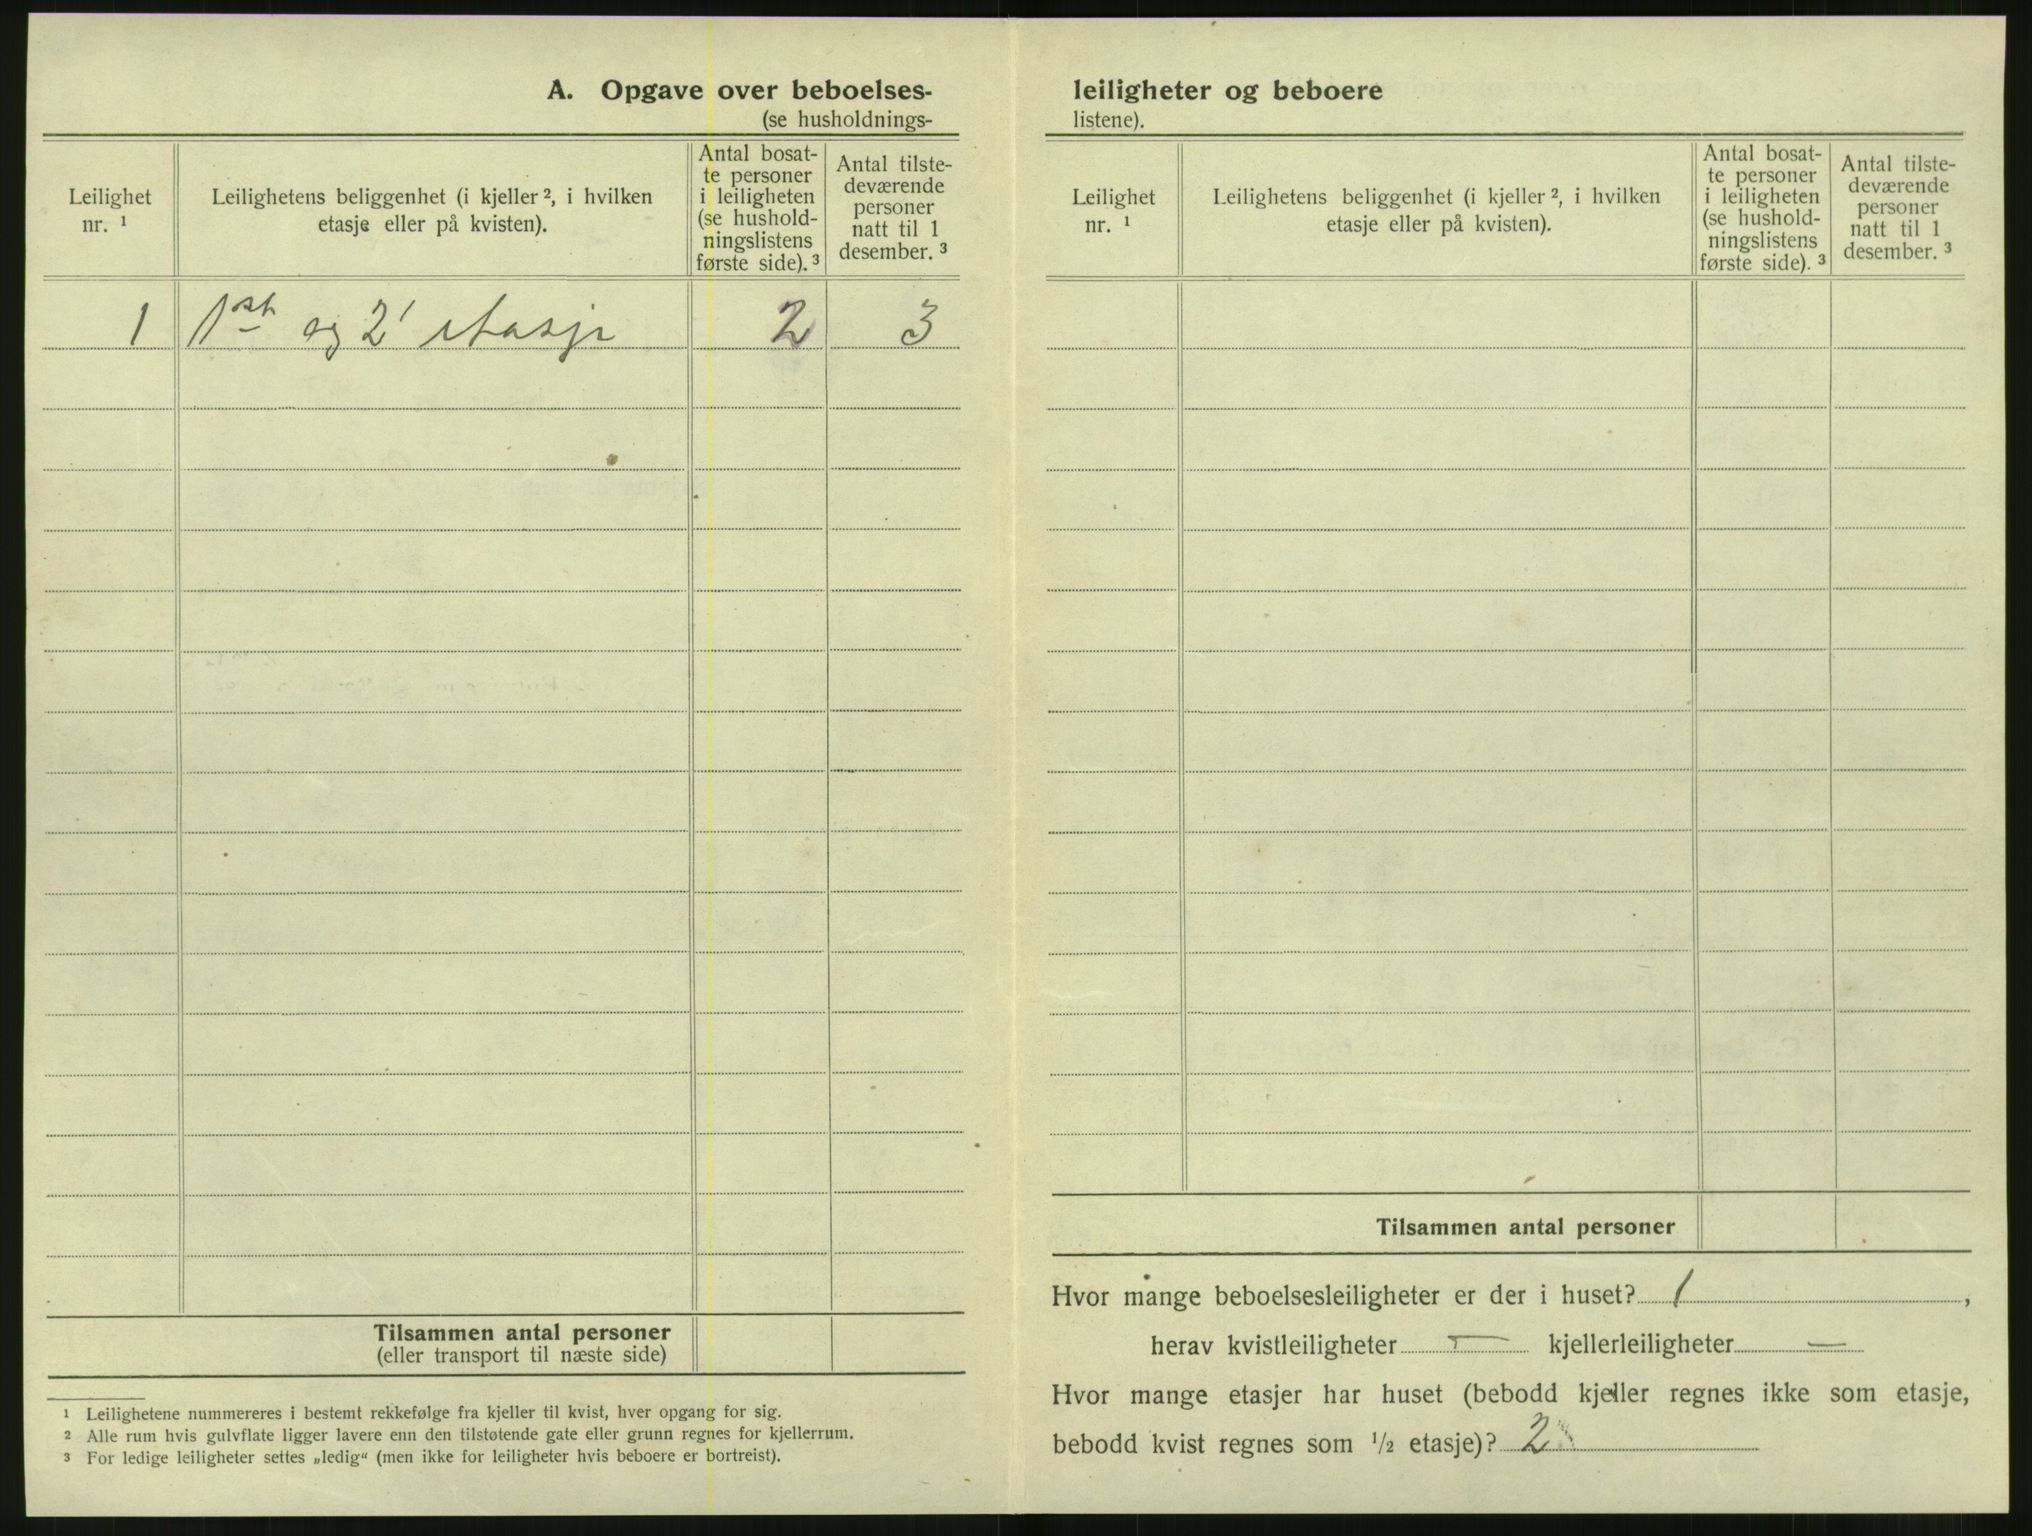 A. Opgave over beboelses-
(se husholdnings-
Leilighet
nr. ¹
Leilighetens beliggenhet (i kjeller ², i hvilken
etasje eller på kvisten).
Antal bosat-
te personer
i leiligheten
(se hushold-
ningslistens
første side). ³
Antal tilste-
deværende
personer
natt til 1
desember. ³
1 1st og 2' etasje 2 3
Tilsammen antal personer
(eller transport til næste side)
¹ Leilighetene nummereres i bestemt rekkefølge fra kjeller til kvist, hver opgang for sig.
² Alle rum hvis gulvflate ligger lavere enn den tilstøtende gate eller grunn regnes for kjellerrum.
³ For ledige leiligheter settes „ledig“ (men ikke for leiligheter hvis beboere er bortreist).
leiligheter og beboere
listene).
Leilighet
nr. ¹
Leilighetens beliggenhet (i kjeller ², i hvilken
etasje eller på kvisten).
Antal bosat-
te personer
i leiligheten
(se hushold-
ningslistens
første side). ³
Antal tilste-
deværende
personer
natt til 1
desember. ³
Tilsammen antal personer
Hvor mange beboelsesleiligheter er der i huset? 1,
herav kvistleiligheter — kjellerleiligheter —
Hvor mange etasjer har huset (bebodd kjeller regnes ikke som etasje,
bebodd kvist regnes som ½ etasje)? 2